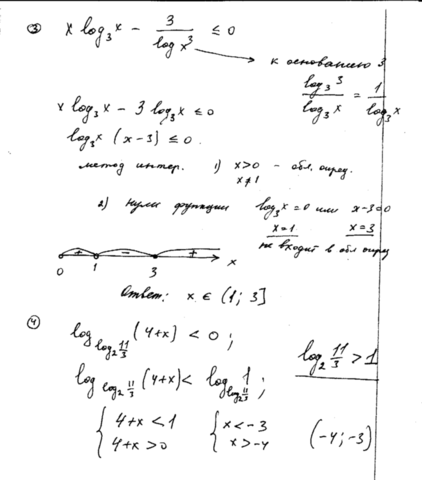 ③ x log₃ x − 3/(log x³) ≤ 0
к основанию 3
log₃ 3 / log₃ x = 1 / log₃ x
x log₃ x − 3 log₃ x ≤ 0
log₃ x (x−3) ≤ 0.
метод интер. 1) x>0 – обл. опред.
x≠1
2) нули функции log₃ x = 0 или x−3=0
x=1 x=3
не входит в обл опред
+ − +
0 1 3 x
Ответ: x ∈ (1; 3]
④ log_{log₂ 11/3} (4+x) < 0;
log₂ 11/3 > 1
log_{log₂ 11/3} (4+x) < log_{log₂ 11/3} 1;
{ 4+x < 1 { x < −3
4+x > 0 x > −4 (−4; −3)